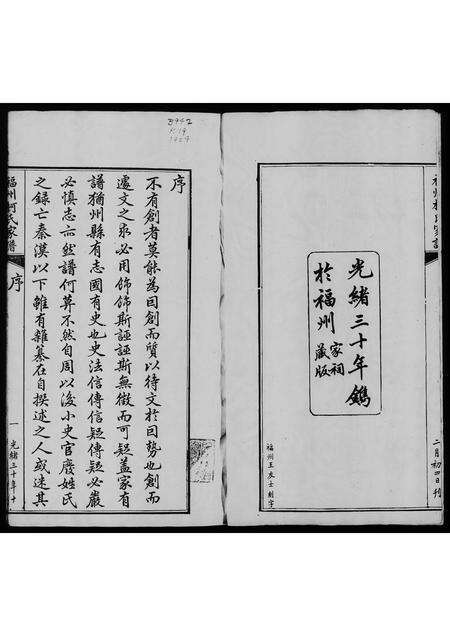 光緒三十年鐫
於福州家祠藏版
二月初四日刊
福州王友士刻字
3942
K19
1404
序
不有創者莫能為因創而質以待文於因勢也創而
遽文之求必用飾飾斯誣誣斯無徵而可疑蓋家有
譜猶州縣有志國有史也史法信傳信疑傳疑必嚴
必慎志亦然譜何莫不然自周以後小史官廢姓氏
之錄亡秦漢以下雖有雜纂在自撰述之人或迷其
福州何氏家譜
序
一
光緒三十年